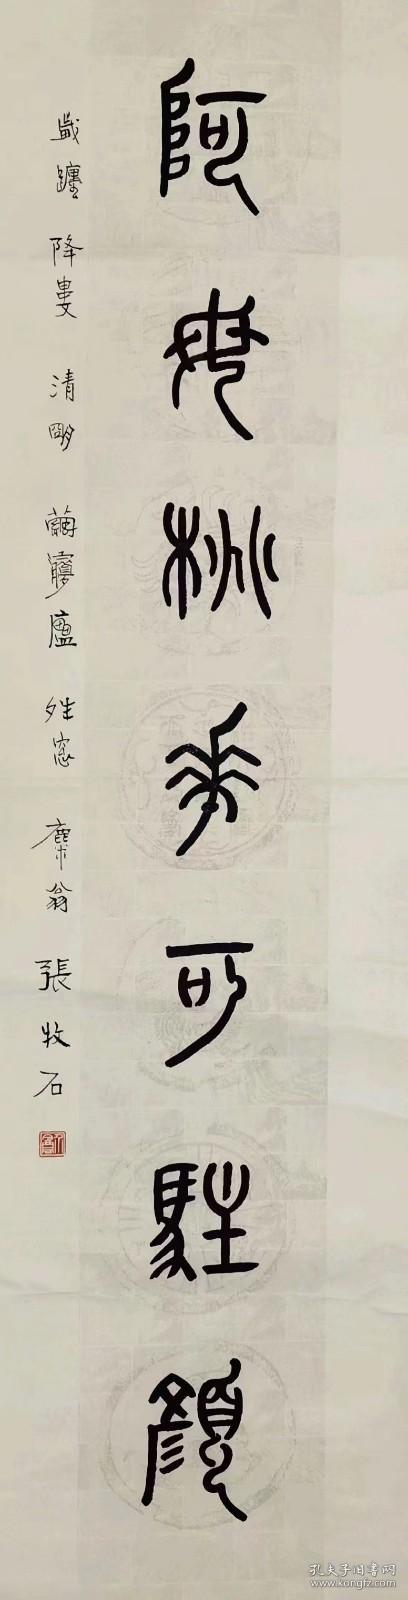 阿母桃華可駐顏
歲躔降婁清明 繭夢廬外窗麋翁張牧石
孔夫子旧书网
www.kongfz.com